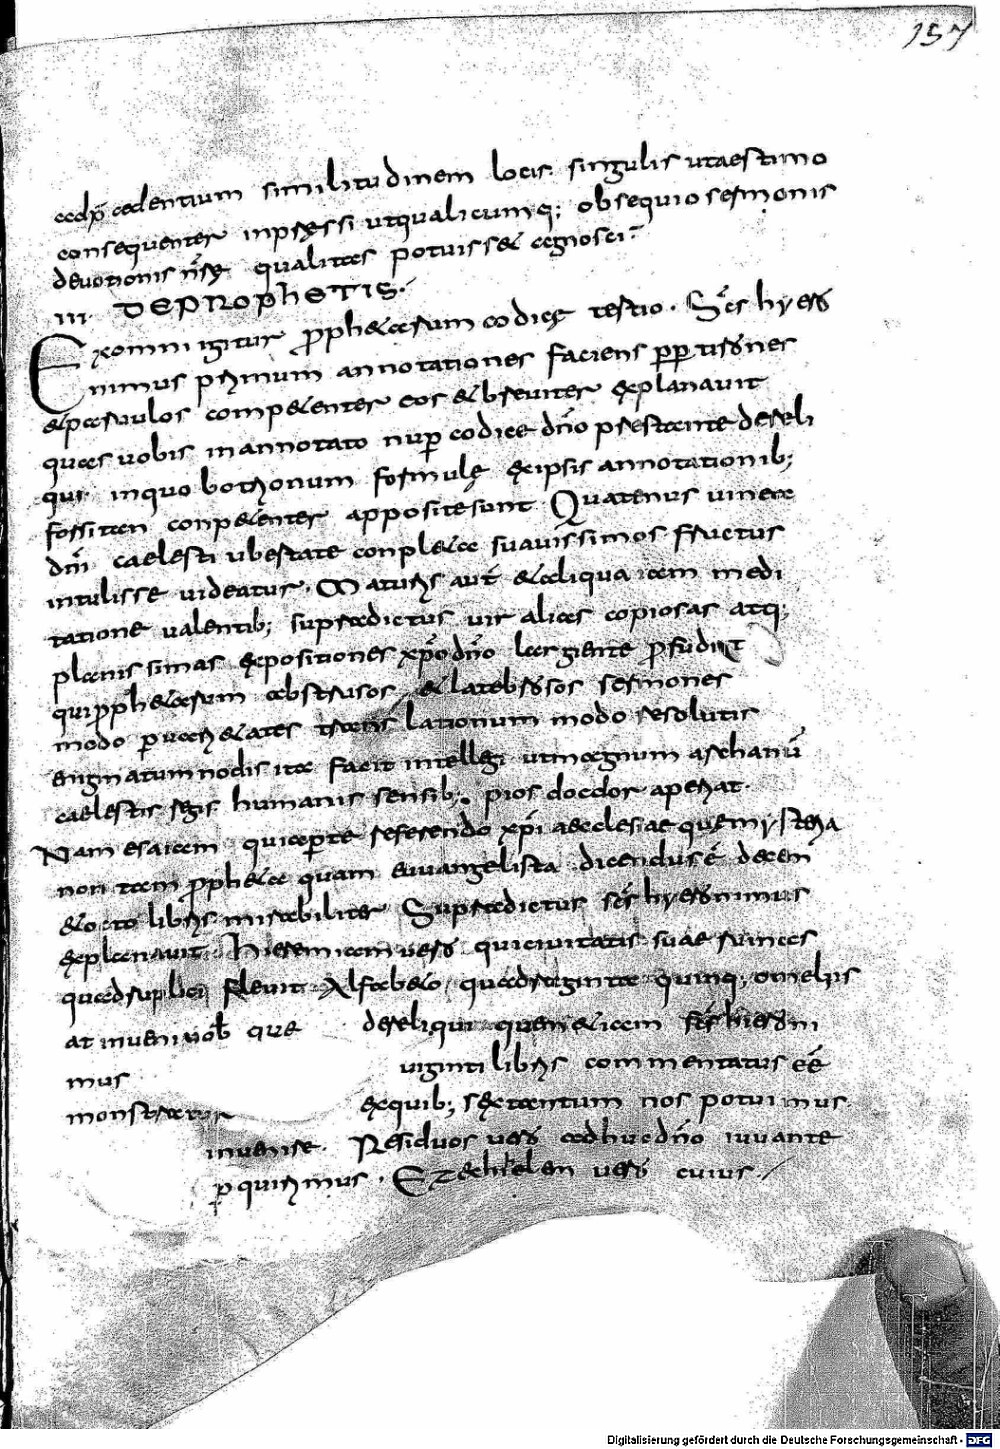 157
adp̄cedentium similitudinem locis singulis utaestimo
consequenter inpressi utqualicumq; obsequio sermonis
devotionis nr̄ę qualitas potuisset agnosci;
III. DE PROPHETIS.
Exomni igitur prophetarum codicę testio. Sc̄s hyero
nimus primum annotationes faciens pp tirones
& parvulos competenter eos & breviter explanavit
quas vobis inannotato nup codice dn̄o prestante dereli
qui. inquo botrionum formulę exipsis annotationib;
fossitan conpetenter apposite sunt. Quatenus vinea
dn̄i caelesti ubertate conpleta suavissimos fructus
intulisse videatur. Maturis aut̄ & aliqua iam medi
tatione valentib; supradictus vir alias copiosas atq;
planissimas expositiones xp̄o dn̄o largiente profudit
qui prophetarum abstrusos & latebrosos sermones
modo p varietates translationum modo resolutis
enigmatum nodis ita facit intellegi ut magnum archanū
caelestis regis humanis sensib; pios doctor aperiat.
Nam esaiam quiaperte referendo xp̄i aecclesiaequemysteria
non tam propheta quam euuangelista dicendus ē decem
& octo libris mirabiliter Supradictus sc̄s hyeronimus
explanavit. Hieremiam vero qui civitatis suae ruinas
quadruplici flevit Alfabeto, quadraginta quinq; omeliis
at inveni vob que dereliqui quem etiam sc̄s hieroni
mus viginti libris commentatus eē
monstratur exquib; sex tantum nos potuimus
invenire. Residuos vero adhuc dn̄o iuvante
p quirimus. Ezechielem vero cuius
Digitalisierung gefördert durch die Deutsche Forschungsgemeinschaft - DFG